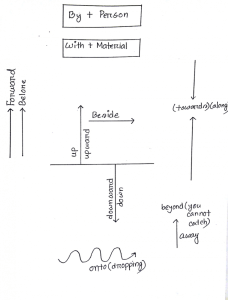 By + Person
With + Material
Forward
Before
Beside
up
upward
(towards)(along)
downward
down
beyond (you
cannot
catch)
away
onto (dropping)